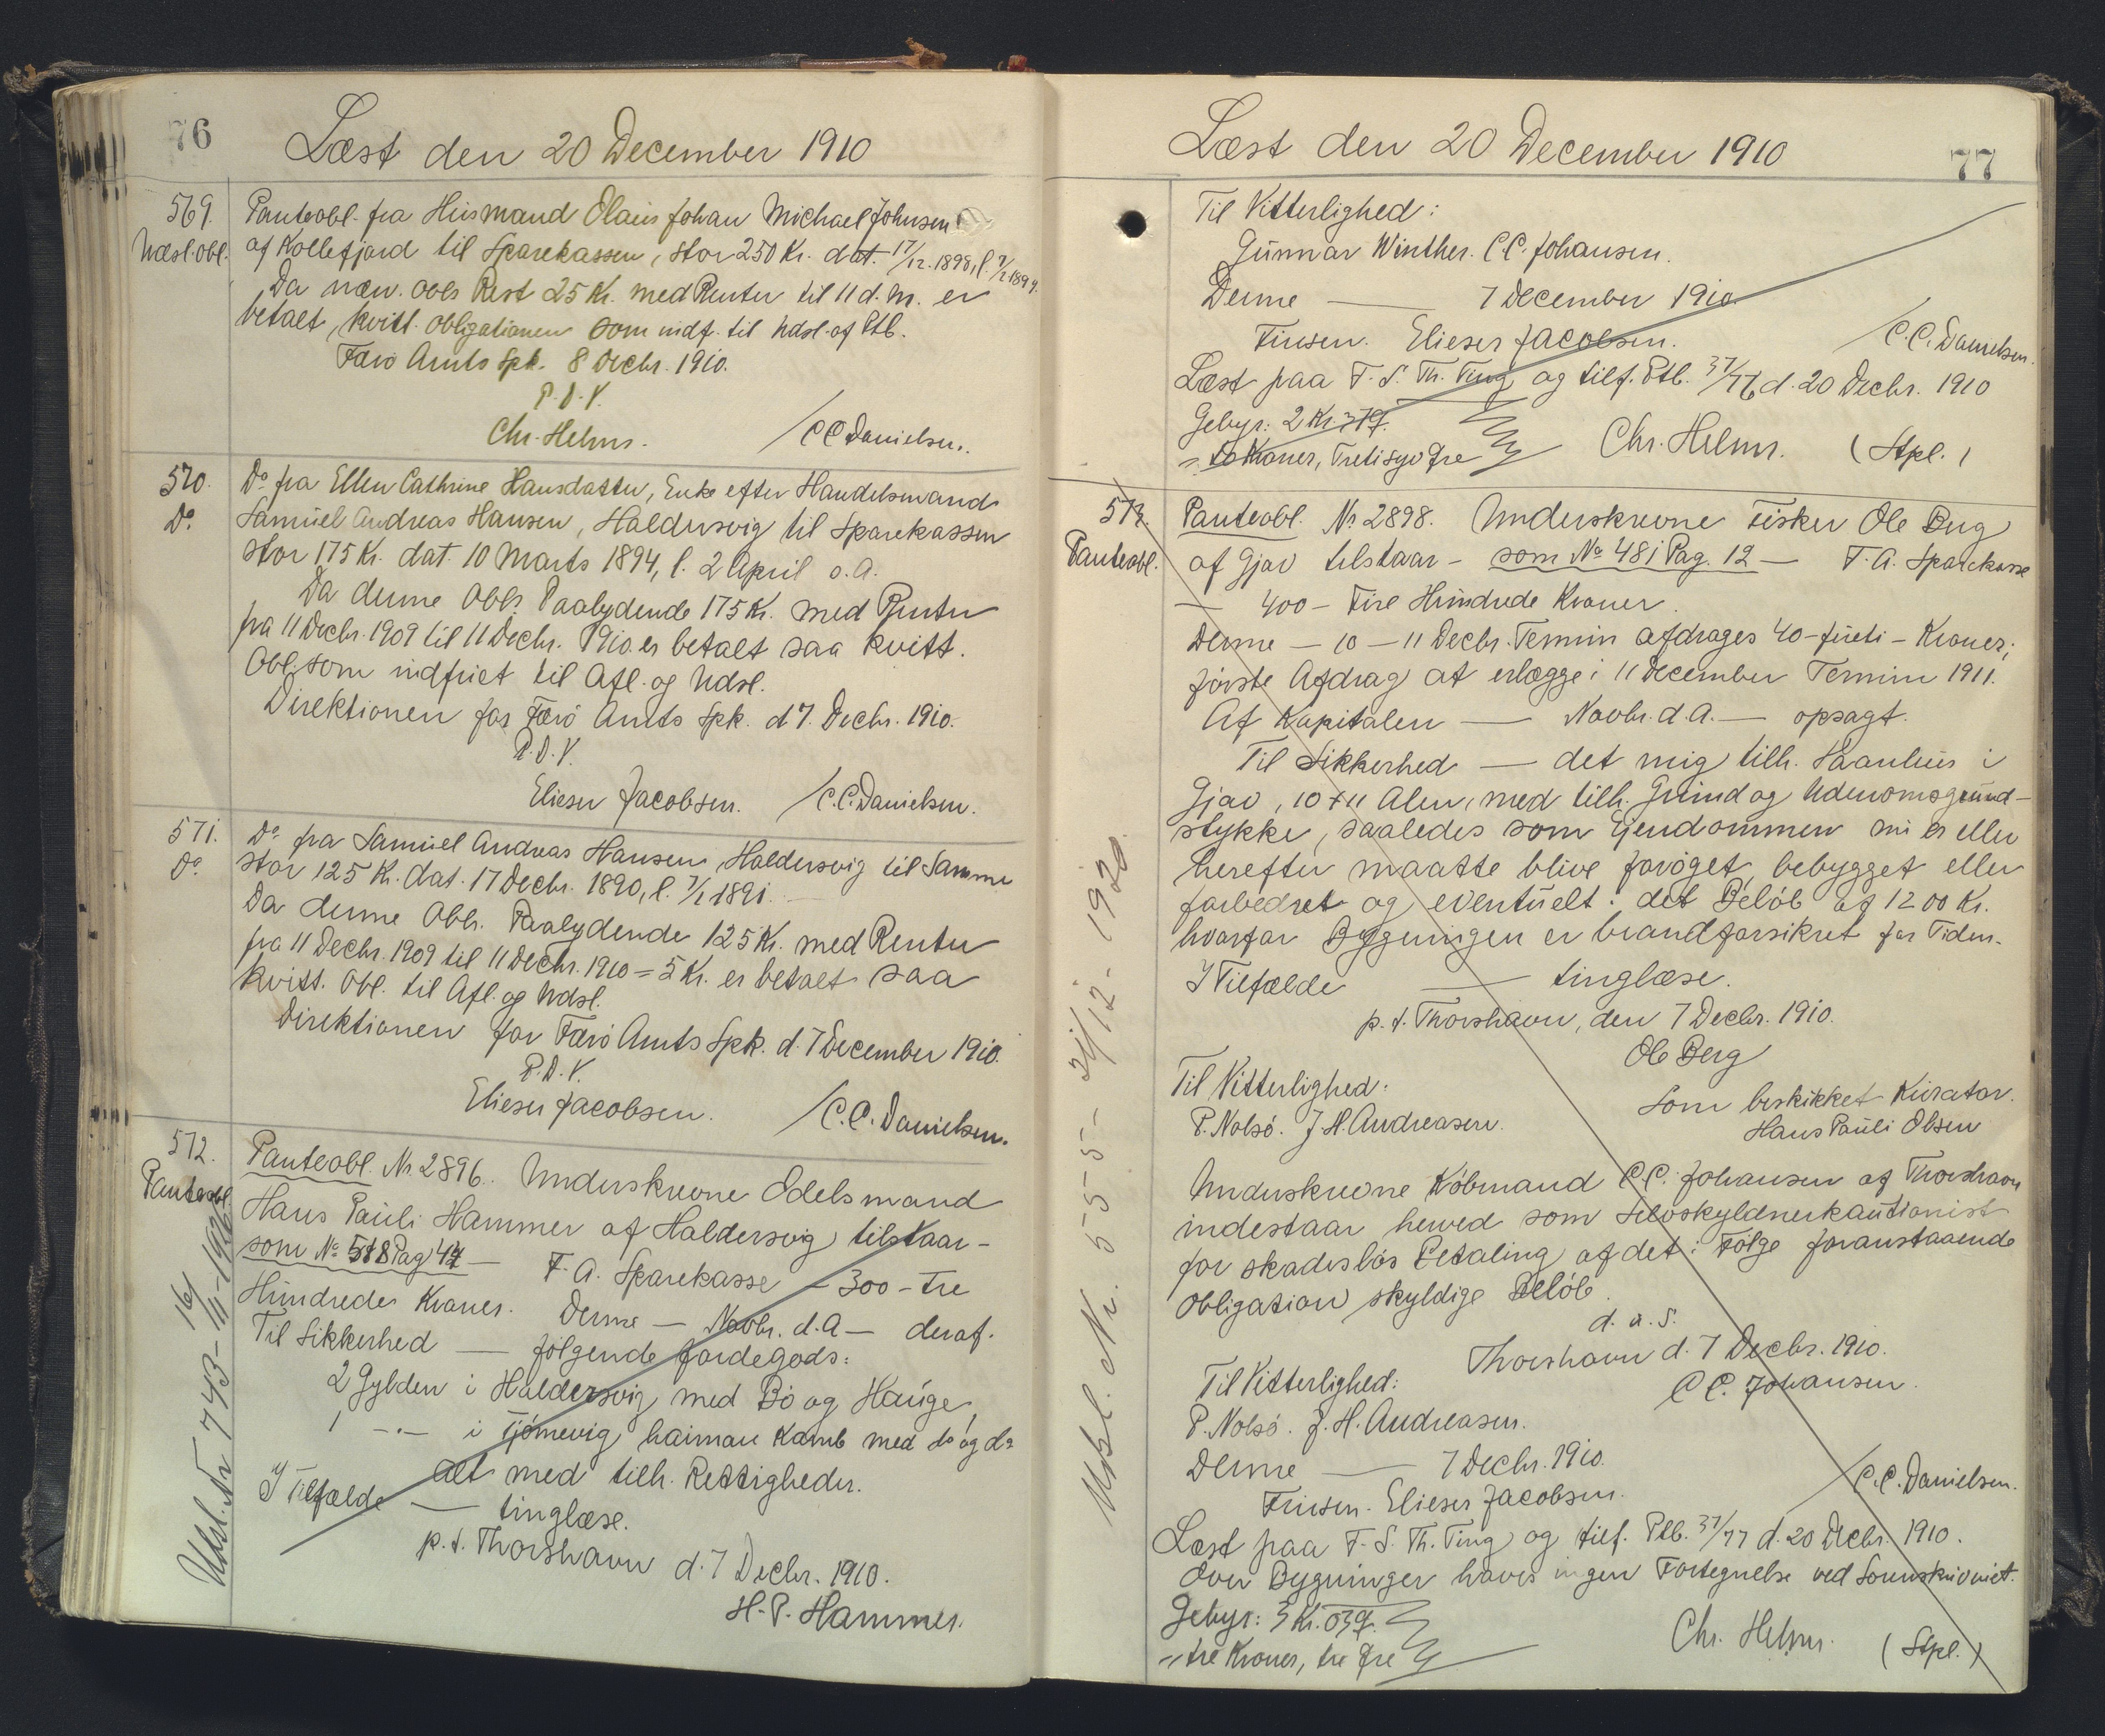 76
Læst den 20 December 1910
569. Panteobl. fra Husmand Olaus Johan Michael Johnsen
Udsl. obl. af Kollefjord til Sparekassen, stor 250 Kr. dat. 17/12. 1898, l. 7/2 1899.
Da næv. Obls Rest 25 Kr. med Renter til 11 d. M. er
betalt, kvitt. Obligationen som indf. til Udsl. af Ptb.
Færø Amts Spk. 8 Decbr. 1910.
P. D. V.
Chr. Helms. / C C Danielsen.
570. Do fra Ellen Cathrine Hansdatter, Enke efter Handelsmand
Do. Samuel Andreas Hansen, Haldersvig til Sparekassen
stor 175 Kr. dat. 10 Marts 1894, l. 2 April s. A.
Da denne Obls. Paalydende 175 Kr. med Renter
fra 11 Decbr. 1909 til 11 Decbr. 1910 er betalt saa kvitt.
Obl. som indfriet til Afl. og Udsl.
Direktionen for Færø Amts Spk. d 7. Decbr. 1910.
P. D. V.
Elieser Jacobsen. / C. C. Danielsen.
571. Do fra Samuel Andreas Hansen, Haldersvig til Samme
Do. stor 125 Kr. dat. 17 Decbr. 1890, l. 7/1 1891.
Da denne Obls. Paalydende 125 Kr. med Renter
fra 11 Decbr. 1909 til 11 Decbr. 1910 = 5 Kr. er betalt saa
kvitt. Obl. til Afl. og Udsl.
Direktionen for Færø Amts Spk. d. 7 December 1910.
P. D. V.
Elieser Jacobsen. / C. C. Danielsen.
572. Panteobl. Nr. 2896. Underskrevne Odelsmand
Panteobl. Hans Pauli Hammer af Haldersvig tilstaar –
som No Pag — F. A. Sparekasse – 300 – Tre
Hundrede Kroner. Denne — Novbr. d. A — deraf.
Til Sikkerhed — følgende Jordegods:
2 Gylden i Haldersvig med Bø og Hauge,
1 –"– i Tjørnevig haiman Kamb med do og do
alt med tilh. Rettigheder.
I Tilfælde — tinglæse.
p. t. Thorshavn d. 7 Decbr. 1910.
H. P. Hammer.
Udsl. Nr 743 –
Læst den 20 December 1910
77
Til Vitterlighed:
Gunnar Winther. C C. Johansen.
Denne — 7 December 1910
Finsen. Elieser Jacobsen. / C. C. Danielsen.
Læst paa F. S. Th. Ting og tilf. Ptb. 37/76 d. 20 Decbr. 1910
Gebyr: 2 Kr 37 Ø.
= to Kroner, Tretisyv Øre Chr. Helms. (Stpl.)
573. Panteobl. Nr. 2898. Underskrevne Fisker Ole Berg
Panteobl. af Gjov tilstaar – som No 481 Pag. 12 — F. A. Sparekasse
— 400 – Fire Hundrede Kroner.
Denne — 10 — 11 Decbr. Termin afdrages 40 – fireti – Kroner;
første Afdrag at erlægge i 11 December Termin 1911.
Af Kapitalen — Novbr. d. A. — opsagt.
Til Sikkerhed — det mig tilh. Vaanhus i
Gjov, 10 x 11 Alen, med tilh. Grund og Udenomsgrund-
stykke, saaledes som Ejendommen nu er eller
herefter maatte blive forøget, bebygget eller
forbedret og eventuelt: det Beløb af 1200 Kr.
hvorfor Bygningen er brandforsikret for Tiden.
I Tilfælde — tinglæse.
p. t. Thorshavn, den 7 Decbr. 1910.
Ole Berg
Til Vitterlighed: Som beskikket Kurator.
P. Nolsø. J. H. Andreasen. Hans Pauli Olsen
Underskrevne Købmand C. C. Johansen af Thorshavn
indestaar herved som Selvskyldnerkautionist
for skadesløs Betaling af det i Følge foranstaaende
Obligation skyldige Beløb.
d. u. S.
Thorshavn d. 7 Decbr. 1910.
Til Vitterlighed: C C. Johansen.
P. Nolsø. J. H. Andreasen.
Denne — 7 Decbr. 1910.
Finsen. Elieser Jacobsen. / C. C. Danielsen.
Læst paa F. S. Th. Ting og tilf. Ptb. 37/77 d. 20 Decbr. 1910.
Over Bygninger haves ingen Fortegnelse ved Sorenskriveriet.
Gebyr: 3 Kr. 03 Ø.
= tre Kroner, tre Øre Chr. Helms. (Stpl.)
Udsl. Nr. 555 – 21/12 – 1920.